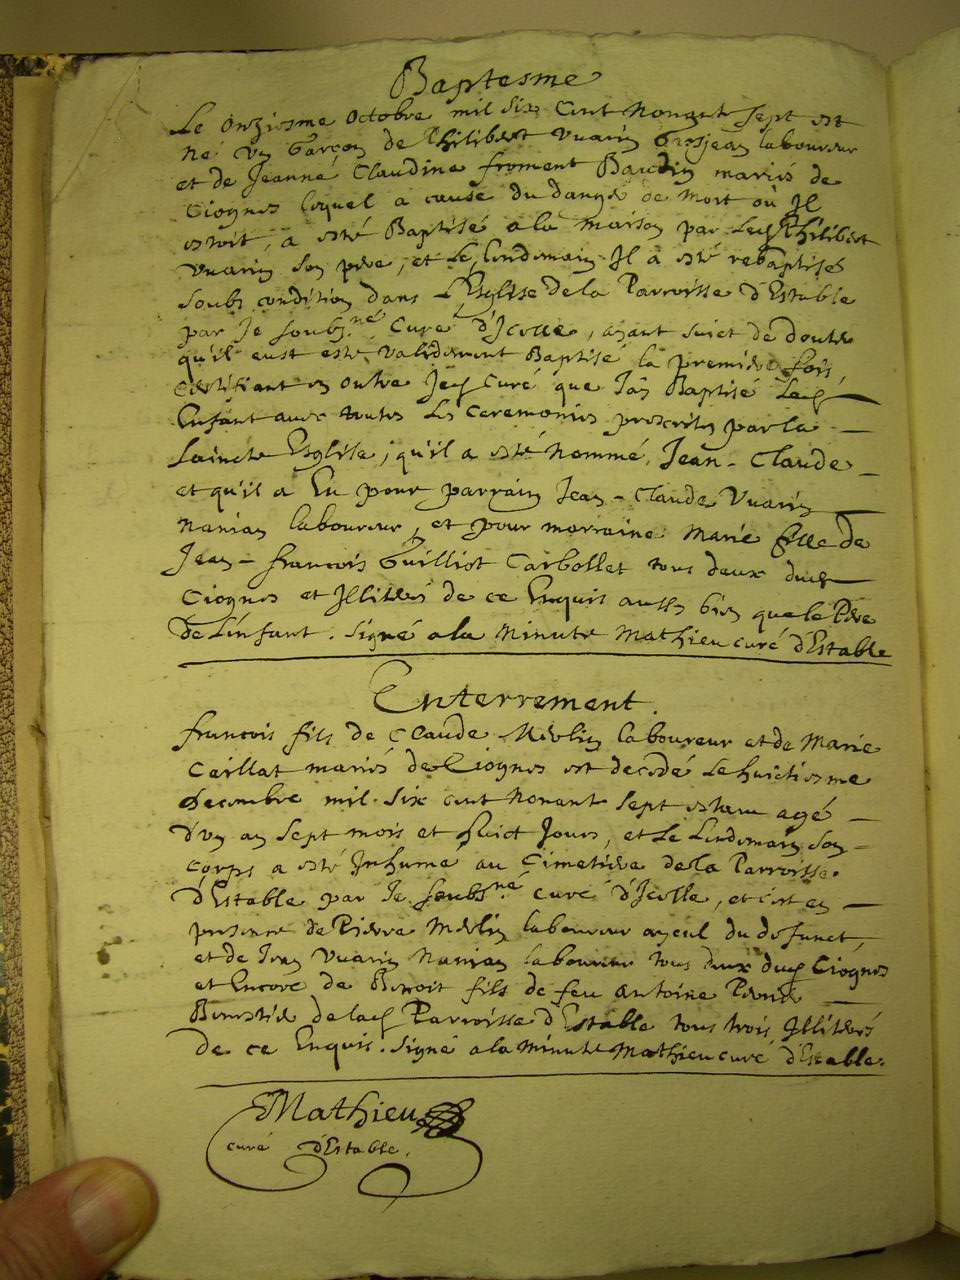 Baptesme
Le onziesme octobre mil six cent nonante sept est
né un garçon de Philibert Vuarin Grosjean laboureur
et de Jeanne Claudine froment Baudin mariés de
Ciognes lequel a cause du danger de mort où Il
estoit, a esté Baptisé a la maison par led. Philibert
Vuarin son pere, et Le lendemain Il a esté rebaptisé
soubs condition dans L'Esglise de la Parroisse d'Estable
par Je soubs.né Curé d'Icelle, ayant suict de doute
qu'il eust esté validement Baptisé la premiere fois,
certifiant en outre Jed. Curé que J'ay Baptisé Led.
Enfant avec toutes les ceremonies prescrites par la
Saincte Esglise, qu'il a esté nommé Jean-Claude
et qu'il a Eu pour parrain Jean-Claude Vuarin
Nanian laboureur, et pour marraine Marie fille de
Jean-françois Guilliot Carbollet tous deux dud.
Ciognes et Illitterés de ce Enquis aussy bien que le Pere
de L'infant. Signé a la minute Mathieu curé d'Estable
Enterrement.
françois fils de Claude Merlin laboureur et de Marie
Caillat mariés de Ciognes est decedé Le huictiesme
decembre mil six cent nonante sept estant agé
d'un an sept mois et huict Jours, et Le Lendemain son
corps a esté Inhumé au Cimetiere de la Parroisse
d'Estable par Je soubs.né curé d'Icelle, et c'est en
presence de Pierre Merlin laboureur ayeul du defunct,
et de Jean Vuarin Nanian laboureur tous deux dud. Ciognes
et Encore de Benoit fils de feu Antoine
de lad. Parroisse d'Estable tous trois Illitterés
de ce Enquis. Signé a la minute Mathieu curé d'Estable.
Mathieu
curé d'Estable.